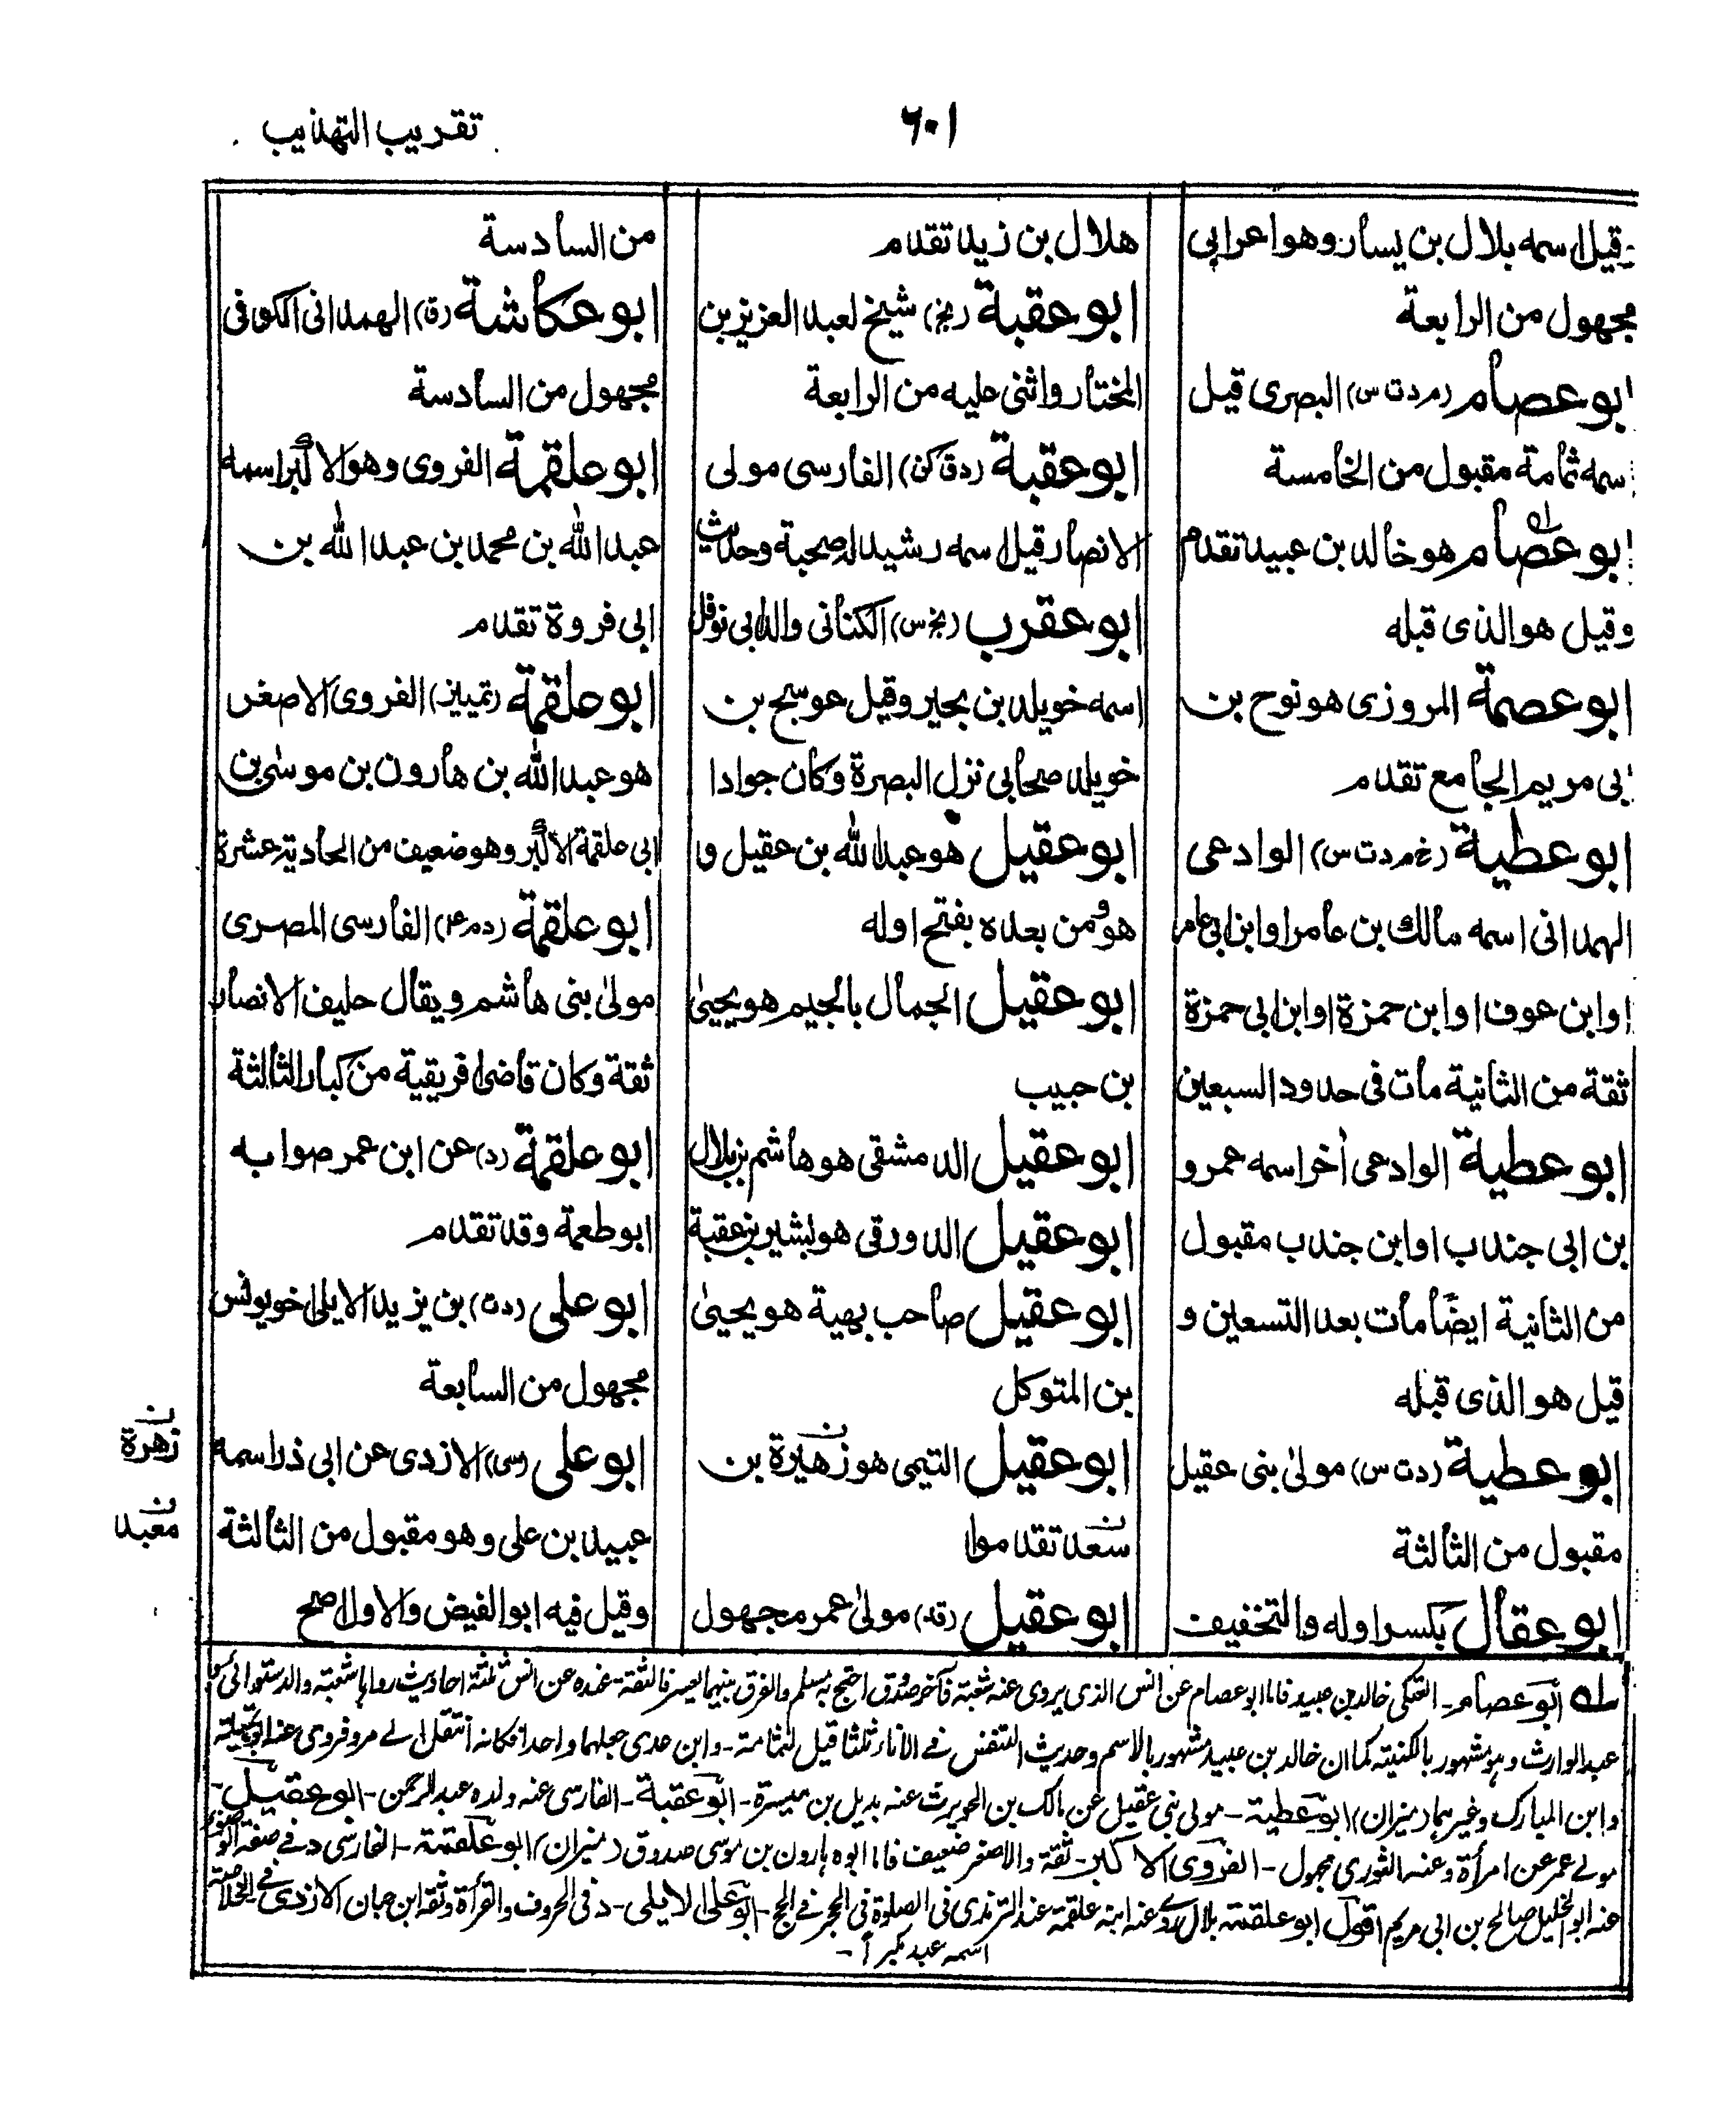 ٦٠١
تقريب التهذيب
قيل اسمه بلال بن يسار وهو اعرابى
مجهول من الرابعة
ابو عصام (م د ت س) البصرى قيل
اسمه ثمامة مقبول من الخامسة
ابو عصام هو خالد بن عبيد تقدم
وقيل هو الذى قبله
ابو عصمة المروزى هو نوح بن
ابى مريم الجامع تقدم
ابو عطية (خ م د ت س) الوادعى
الهمدانى اسمه مالك بن عامر او ابن ابى عامر
او ابن عوف او ابن حمزة او ابن ابى حمزة
ثقة من الثانية مات فى حدود السبعين
ابو عطية الوادعى أخر اسمه عمرو
بن ابى جندب او ابن جندب مقبول
من الثانية ايضًا مات بعد التسعين و
قيل هو الذى قبله
ابو عطية (د ت س) مولىٰ بنى عقيل
مقبول من الثالثة
ابو عقال بكسر اوله والتخفيف
هلال بن زيد تقدم
ابو عقبة (بخ) شيخ لعبد العزيز بن
المختار واثنى عليه من الرابعة
ابو عقبة (د ق كن) الفارسى مولى
الانصار قيل اسمه رشيد له صحبة وحديث
ابو عقرب (بخ س) الكنانى والد ابى نوفل
اسمه خويلد بن بحير وقيل عوسج بن
خويلد صحابى نزل البصرة وكان جوادا
ابو عقيل هو عبد الله بن عقيل و
هو ومن بعده بفتح اوله
ابو عقيل الجمال بالجيم هو يحيىٰ
بن حبيب
ابو عقيل الدمشقى هو هاشم بن بلال
ابو عقيل الدورقى هو بشير بن عقبة
ابو عقيل صاحب بهية هو يحيىٰ
بن المتوكل
ابو عقيل التيمى هو زهيرة بن
سعد تقدموا
ابو عقيل (قد) مولىٰ عمر مجهول
من السادسة
ابو عكاشة (ق) الهمدانى الكوفى
مجهول من السادسة
ابو علقمة الفروى وهو الاكبر اسمه
عبد الله بن محمد بن عبد الله بن
ابى فروة تقدم
ابو علقمة (تمييز) الفروى الاصغر
هو عبد الله بن هارون بن موسىٰ بن
ابى علقمة الاكبر وهو ضعيف من الحادية عشرة
ابو علقمة (ر م عـ) الفارسى المصرى
مولىٰ بنى هاشم ويقال حليف الانصار
ثقة وكان قاضى افريقية من كبار الثالثة
ابو علقمة (د) عن ابن عمر صوابه
ابو طعمة وقد تقدم
ابو على (د ت) بن يزيد الايلى اخو يونس
مجهول من السابعة
ابو على (سى) الازدى عن ابى ذر اسمه
عبيد بن على وهو مقبول من الثالثة
وقيل فيه ابو الفيض والاول اصح
زهرة
معبد
ابو عصام ـ العتكى خالد بن عبيد فاما ابو عصام عن انس الذى يروى عنه شعبة فآخر صدوق احتج به مسلم والفرق بينهما يعسر فالثقة عنده عن انس ثلثة احاديث رواها شعبة والدستوائى
عبد الوارث وهو مشهور بالكنية كما ان خالد بن عبيد مشهور بالاسم وحديث التنفس فى الاناء ثلثا قيل لثمامة ـ وابن عدى جعلهما واحدا فكانه انتقل الے مرو فروى عنه ابو تميلة
وابن المبارك وغيرهما (ميزان) ابو عطية ـ مولى بنى عقيل عن مالك بن الحويرث عنه بديل بن ميسرة ـ ابو عقبة ـ الفارسى عنه ولده عبد الرحمن ـ ابو عقيل ـ
مولے عمر عن امرأة وعنه الثورى مجهول ـ الفروى الاكبر ـ ثقة والاصغر ضعيف فاما ابوه هارون بن موسى صدوق (ميزان) ابو علقمة ـ الفارسى د فے صفة
عنه ابو الخليل صالح بن ابى مريم اقول ابو علقمة عنه ابنه علقمة عند الترمذى فى الصلوة فى الحجر فے الحج ـ ابو على الايلى ـ د فى الحروف والقرأة وثقه ابن حبان الازدى فے الخلاصة
اسمه عبيد مكبرا ـ